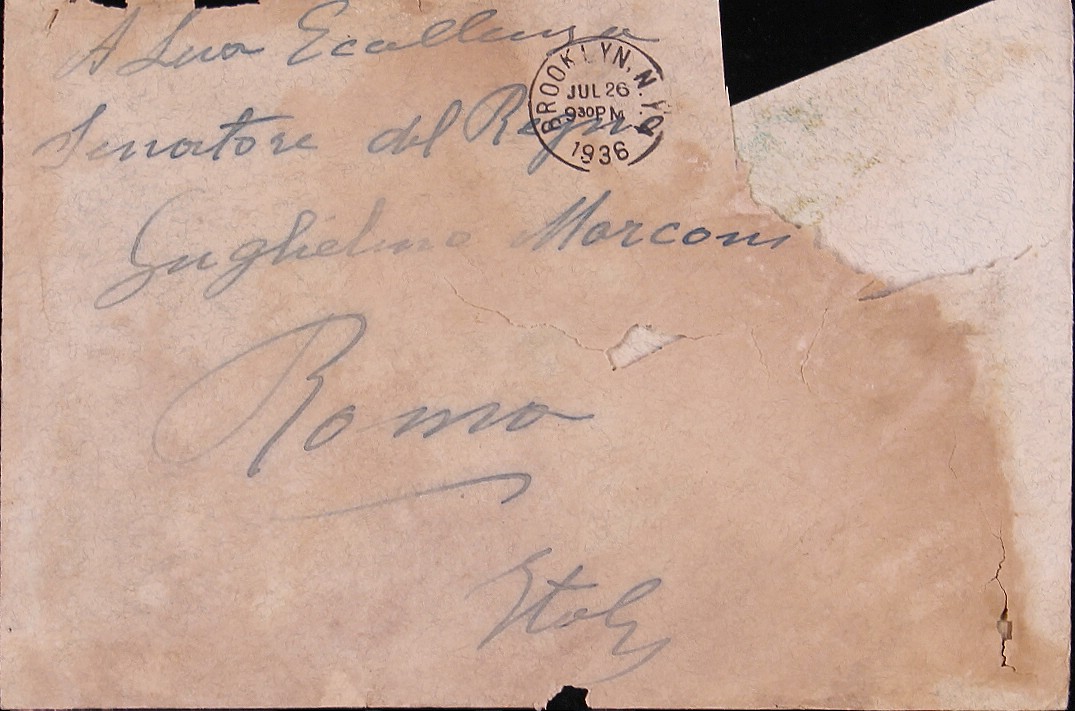 A Sua Eccellenza
BROOKLYN, N.Y.
JUL 26
930PM
1936
Senatore del Regno
Guglielmo Marconi
Roma
Italy